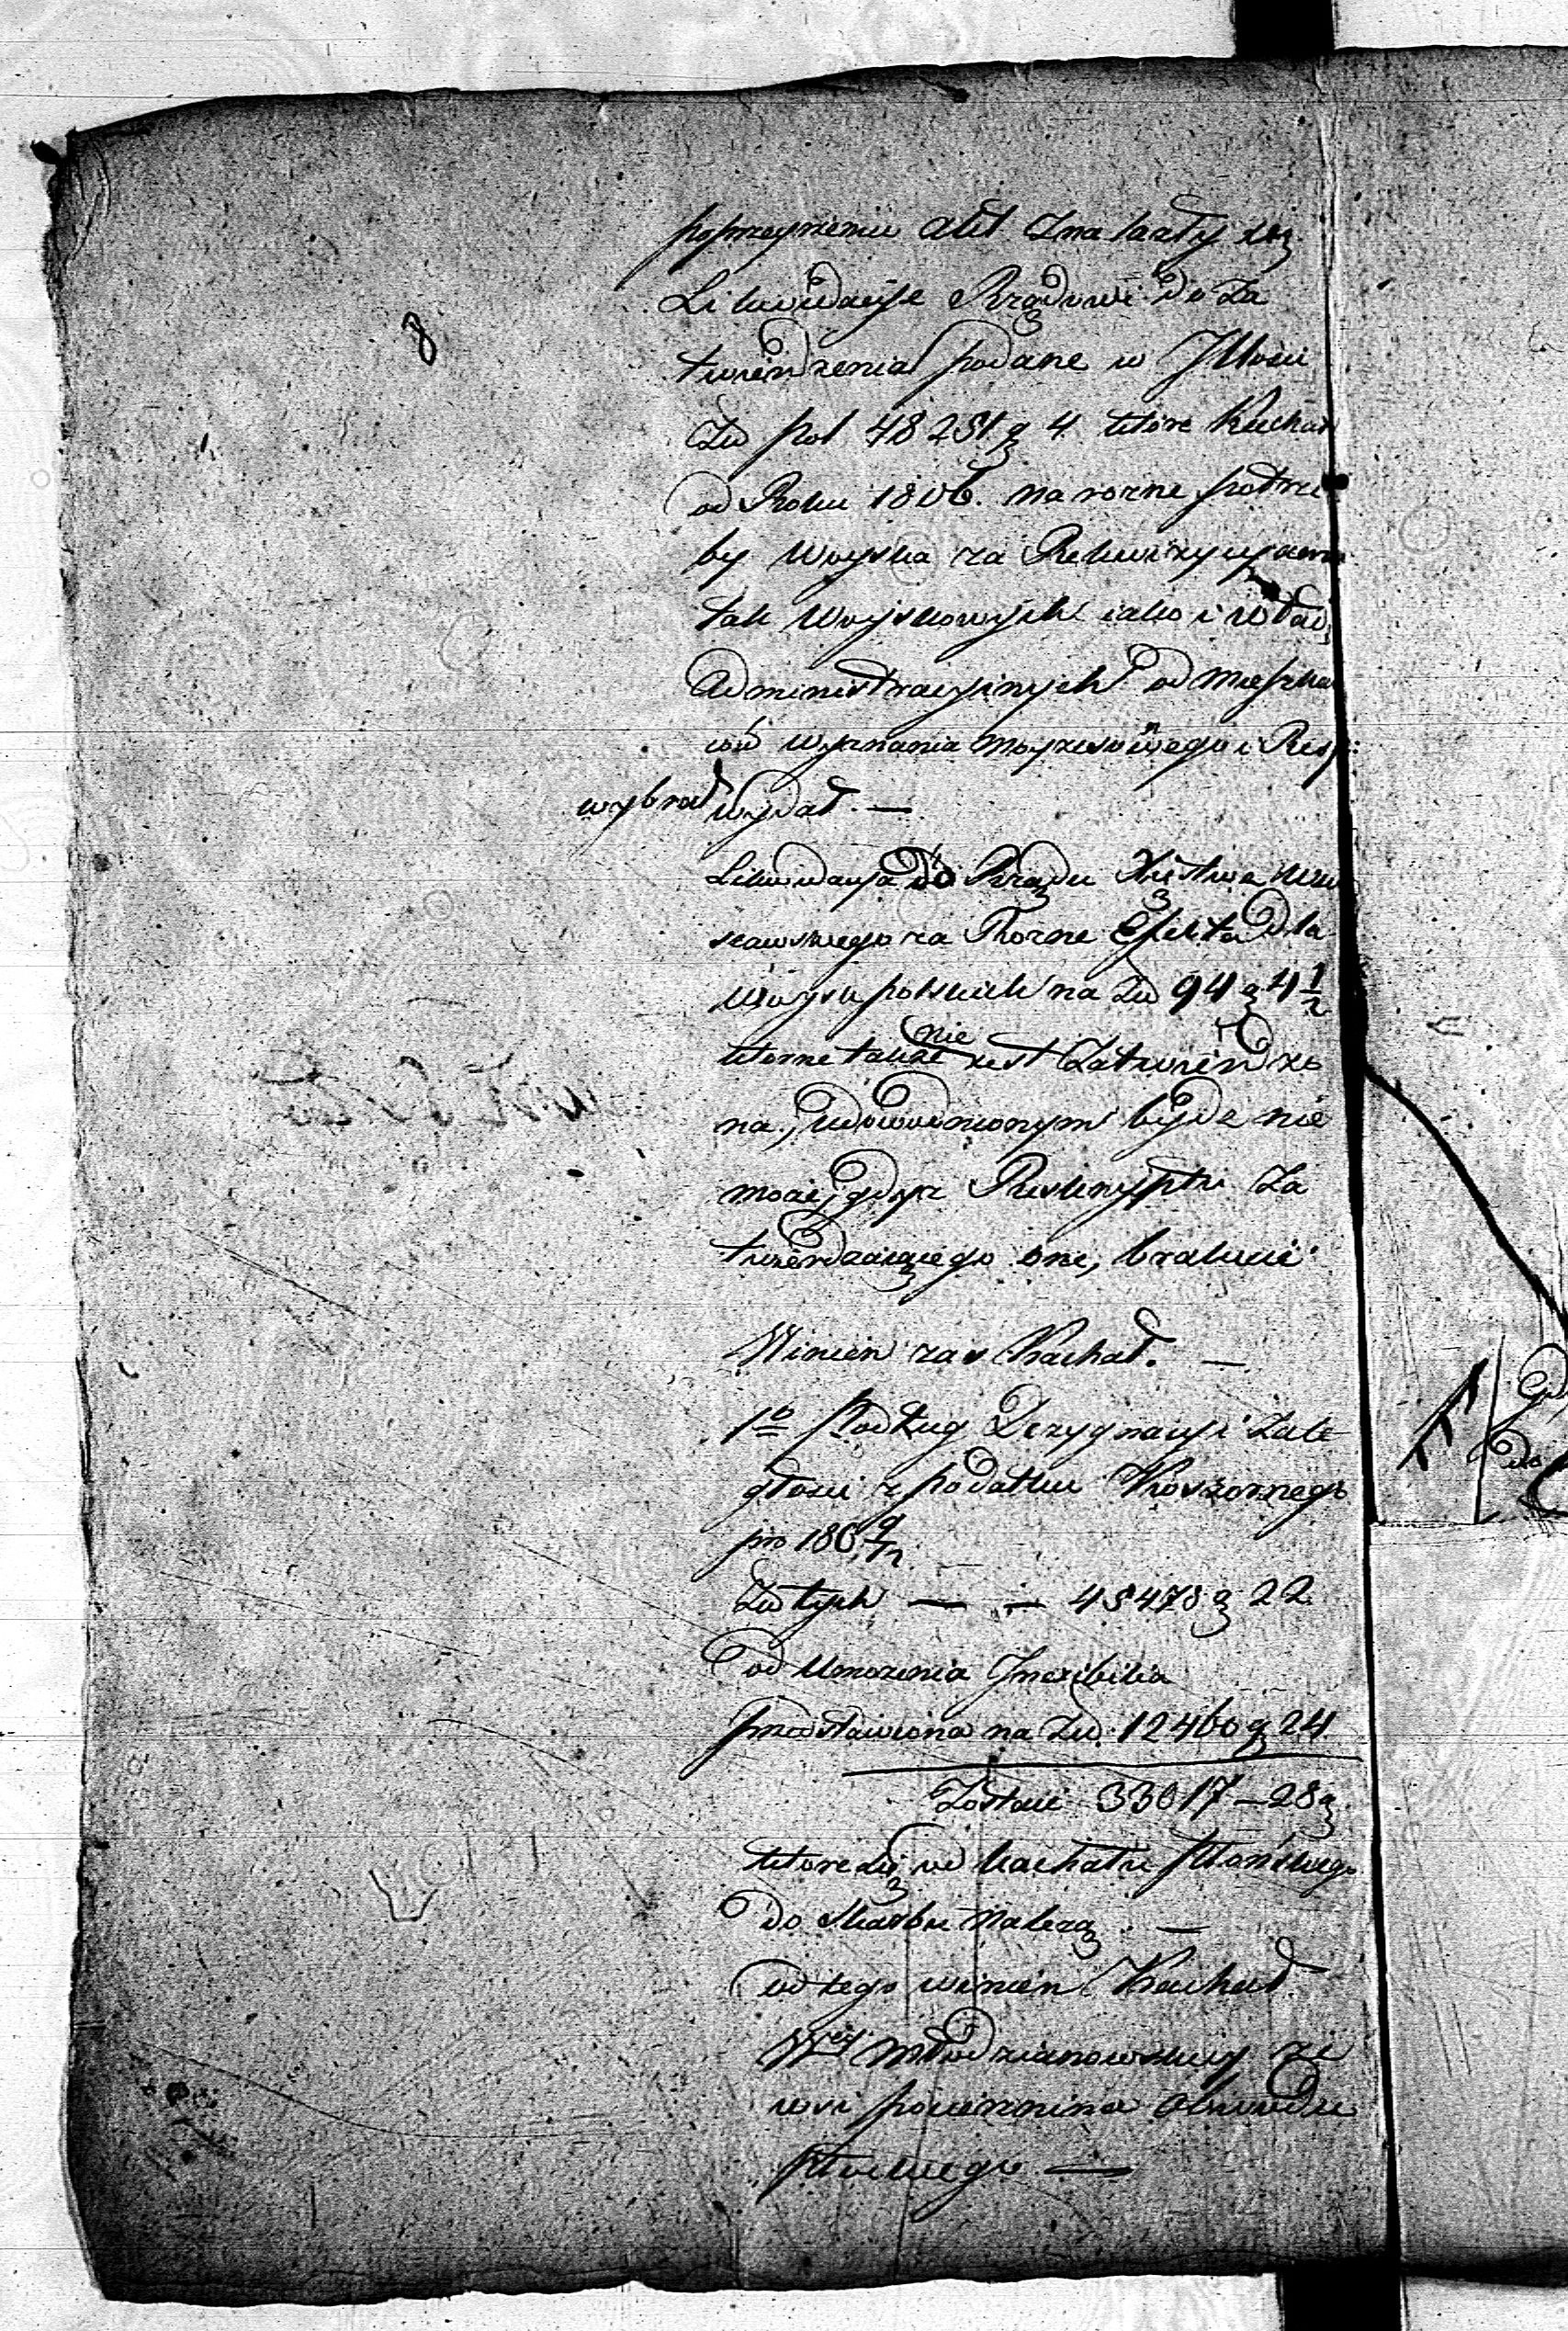 8
poprzeyrzeniu akt Znalazły się
Likwidacyje Rządowi do Za
twierdzenia podane w Jlłości
Zł pol 48251 g 4 które Kachał
od Roku 1806. na rozne potrze
by Woyska za Rekwizycyami
tak Woyskowych iako i władz
Administracyinych od mieszkań
ców wyznania Moyzeszowego
wybrał wydał. —
Likwidacyia do Rządu Xięstwa War
szawskiego za Rozne Efekta dla
Woysk polskich na Zł 94 g 4 1/2
które także nie iest Zatwierdzo
na, udowodnionym bydz nie
może, gdyz Reskryptu Za
twierdzaiącego one, brakuie
Winien zas Kachał. —
1o Podług Dezygnacyi Zale
głosci z podatku Koszernego
pro 18
Złotych — — 45478 g 22
od Umorzenia Jnexibilia
przedstawiona na Zł. 12460 g 24
Zostaie 33017 — 28 g
które się od Kachału Płońskiego
do Skarbu należą. —
od tego winien Kachał
Młodzianowskiey
Obwodu